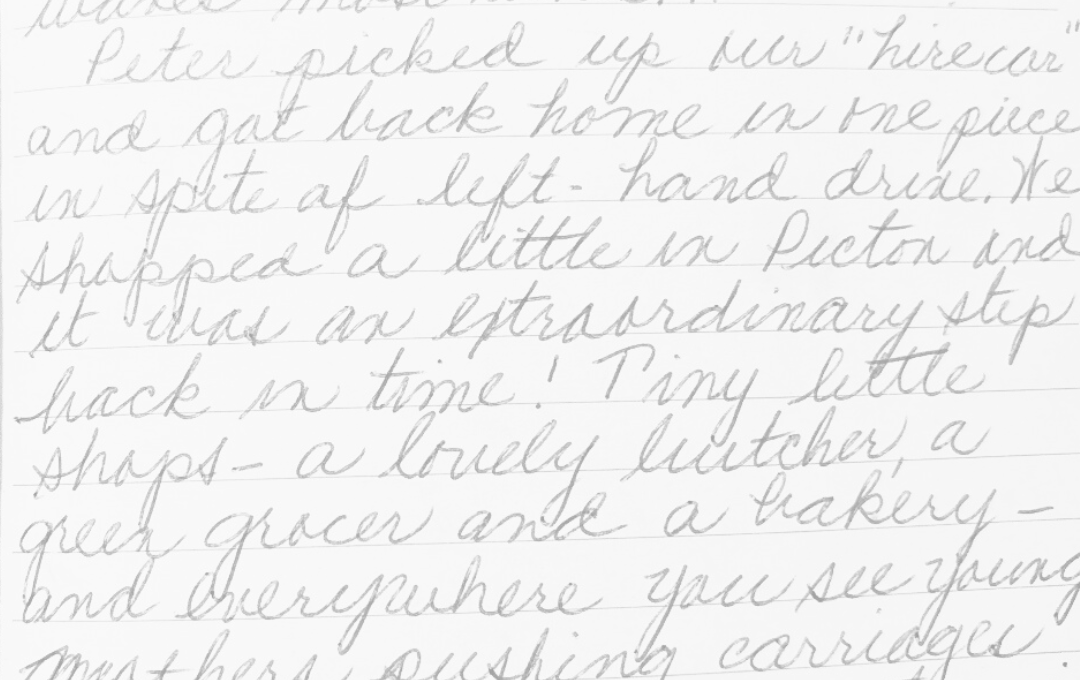 waves most
Peter picked up our "hirecar"
and got back home in one piece
in spite of left-hand drive. We
shopped a little in Picton and
it was an extraordinary step
back in time! Tiny little
shops - a lovely butcher, a
green grocer and a bakery -
and everywhere you see young
mothers pushing carriages.